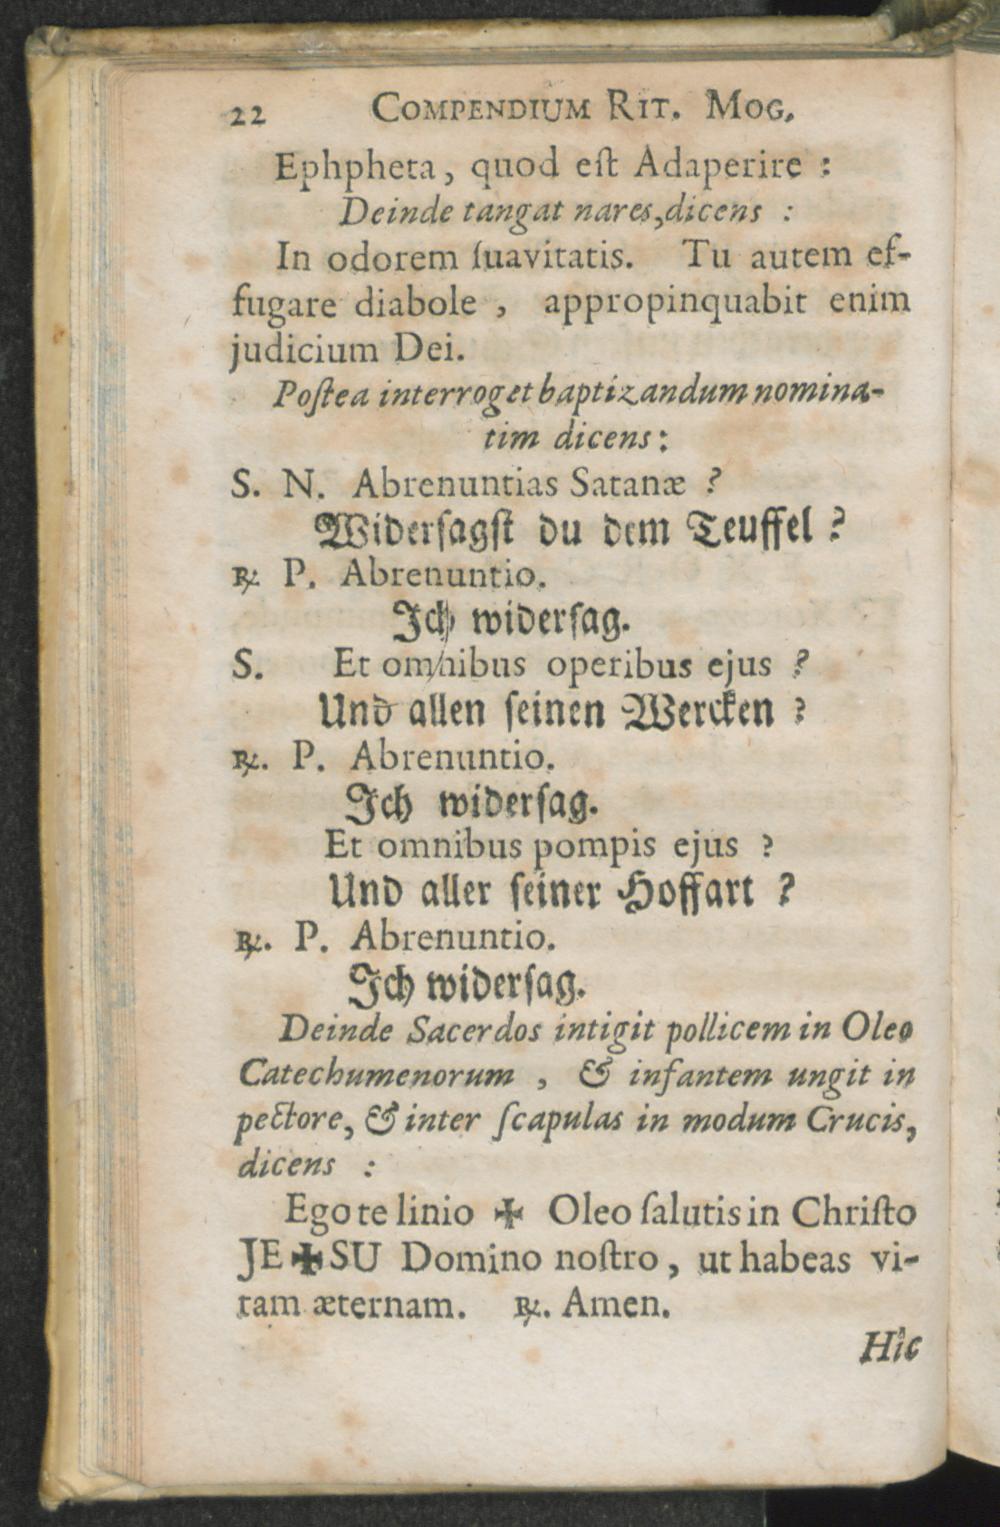 22 COMPENDIUM RIT. MOG.
Ephpheta, quod eſt Adaperire :
Deinde tangat nares, dicens :
In odorem ſuavitatis. Tu autem ef-
fugare diabole , appropinquabit enim
judicium Dei.
Poſtea interroget baptizandum nomina-
tim dicens:
S. N. Abrenuntias Satanæ ?
Widerſagſt du dem Teuffel ?
℞ P. Abrenuntio.
Ich widerſag.
S. Et omnibus operibus ejus ?
Und allen ſeinen Wercken ?
℞. P. Abrenuntio.
Ich widerſag.
Et omnibus pompis ejus ?
Und aller ſeiner Hoffart ?
℞. P. Abrenuntio.
Ich widerſag.
Deinde Sacerdos intigit pollicem in Oleo
Catechumenorum , & infantem ungit in
pectore, & inter ſcapulas in modum Crucis,
dicens :
Ego te linio ✠ Oleo ſalutis in Chriſto
JE✠SU Domino noſtro, ut habeas vi-
tam æternam. ℞. Amen.
Hîc